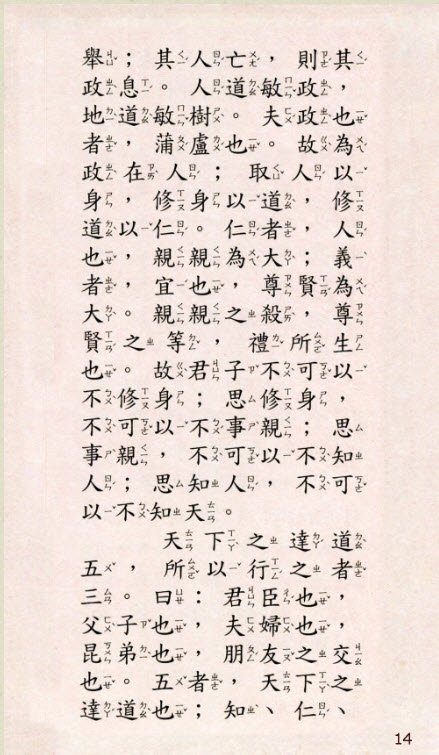 舉；其人亡，則其
政息。人道敏政，
地道敏樹。夫政也
者，蒲盧也。故為
政在人；取人以
身，修身以道，修
道以仁。仁者，人
也，親親為大；義
者，宜也，尊賢為
大。親親之殺，尊
賢之等，禮所生
也。故君子不可以
不修身；思修身，
不可以不事親；思
事親，不可以不知
人；思知人，不可
以不知天。
天下之達道
五，所以行之者
三。曰：君臣也，
父子也，夫婦也，
昆弟也，朋友之交
也。五者，天下之
達道也；知、仁、
14